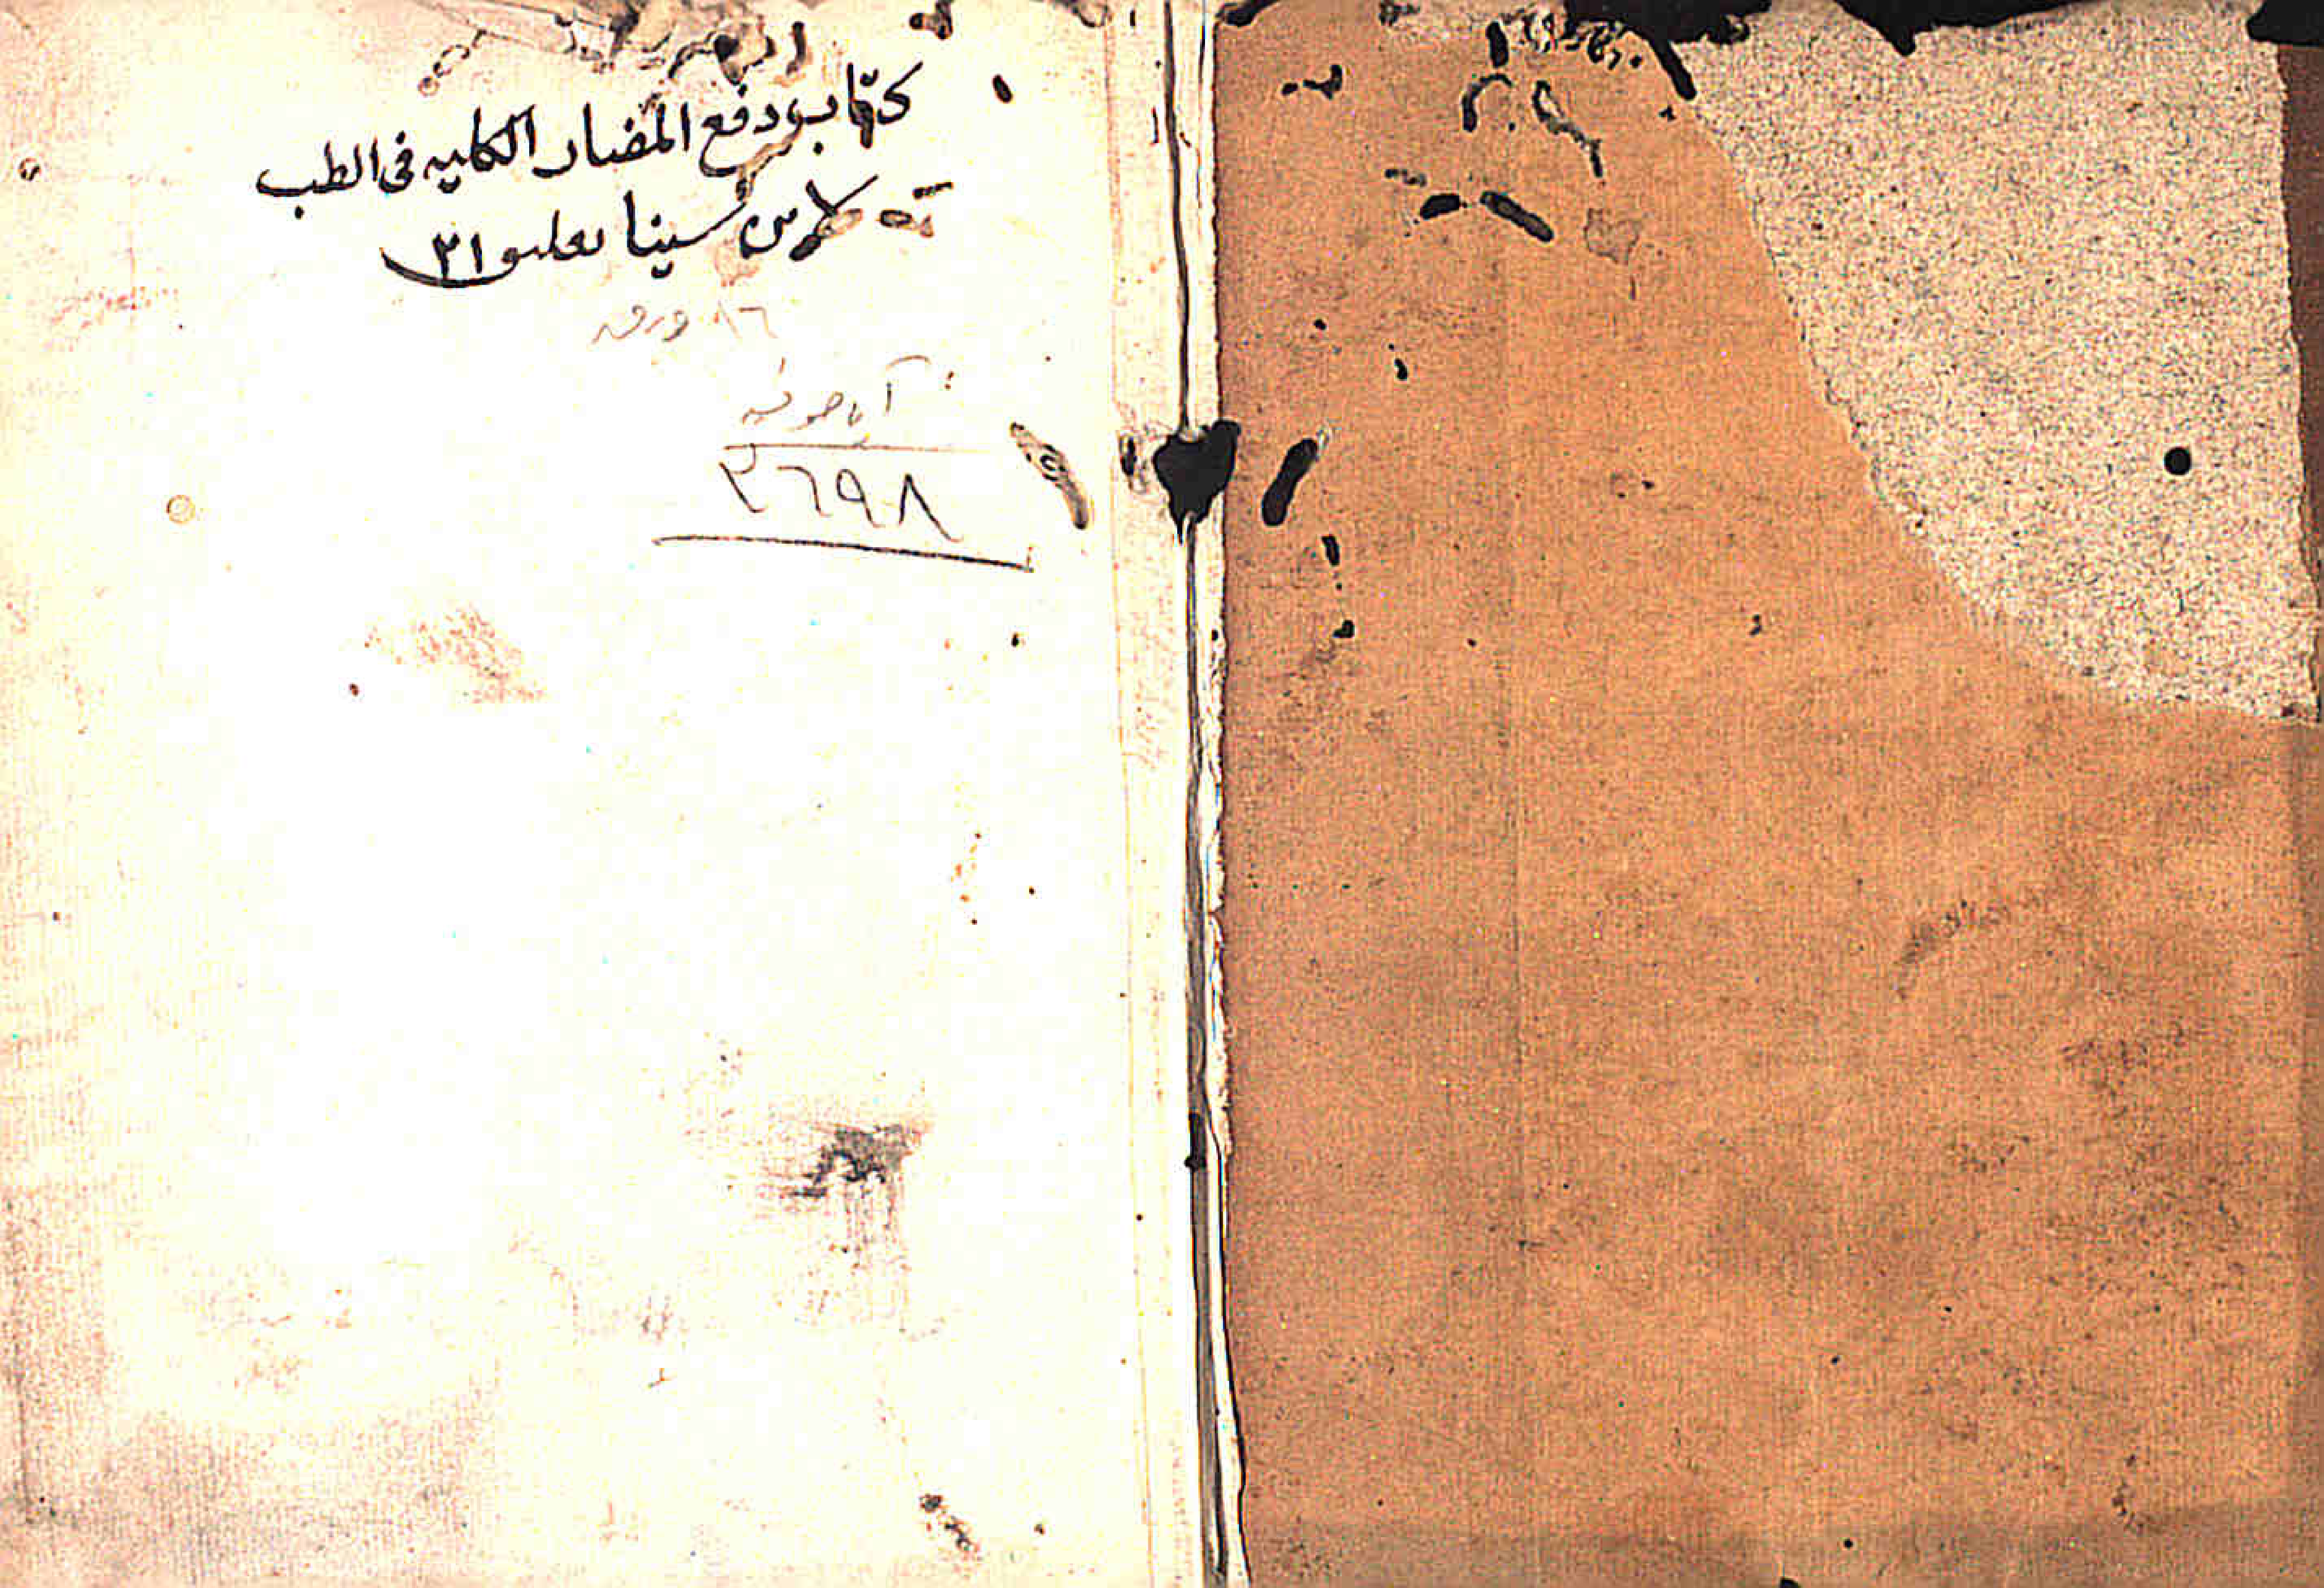 كتاب دفع المضار الكليه فى الطب
لابن سينا تعليق ٢١
٨٦ ورقه
آياصوفيه
٣٦٩٨